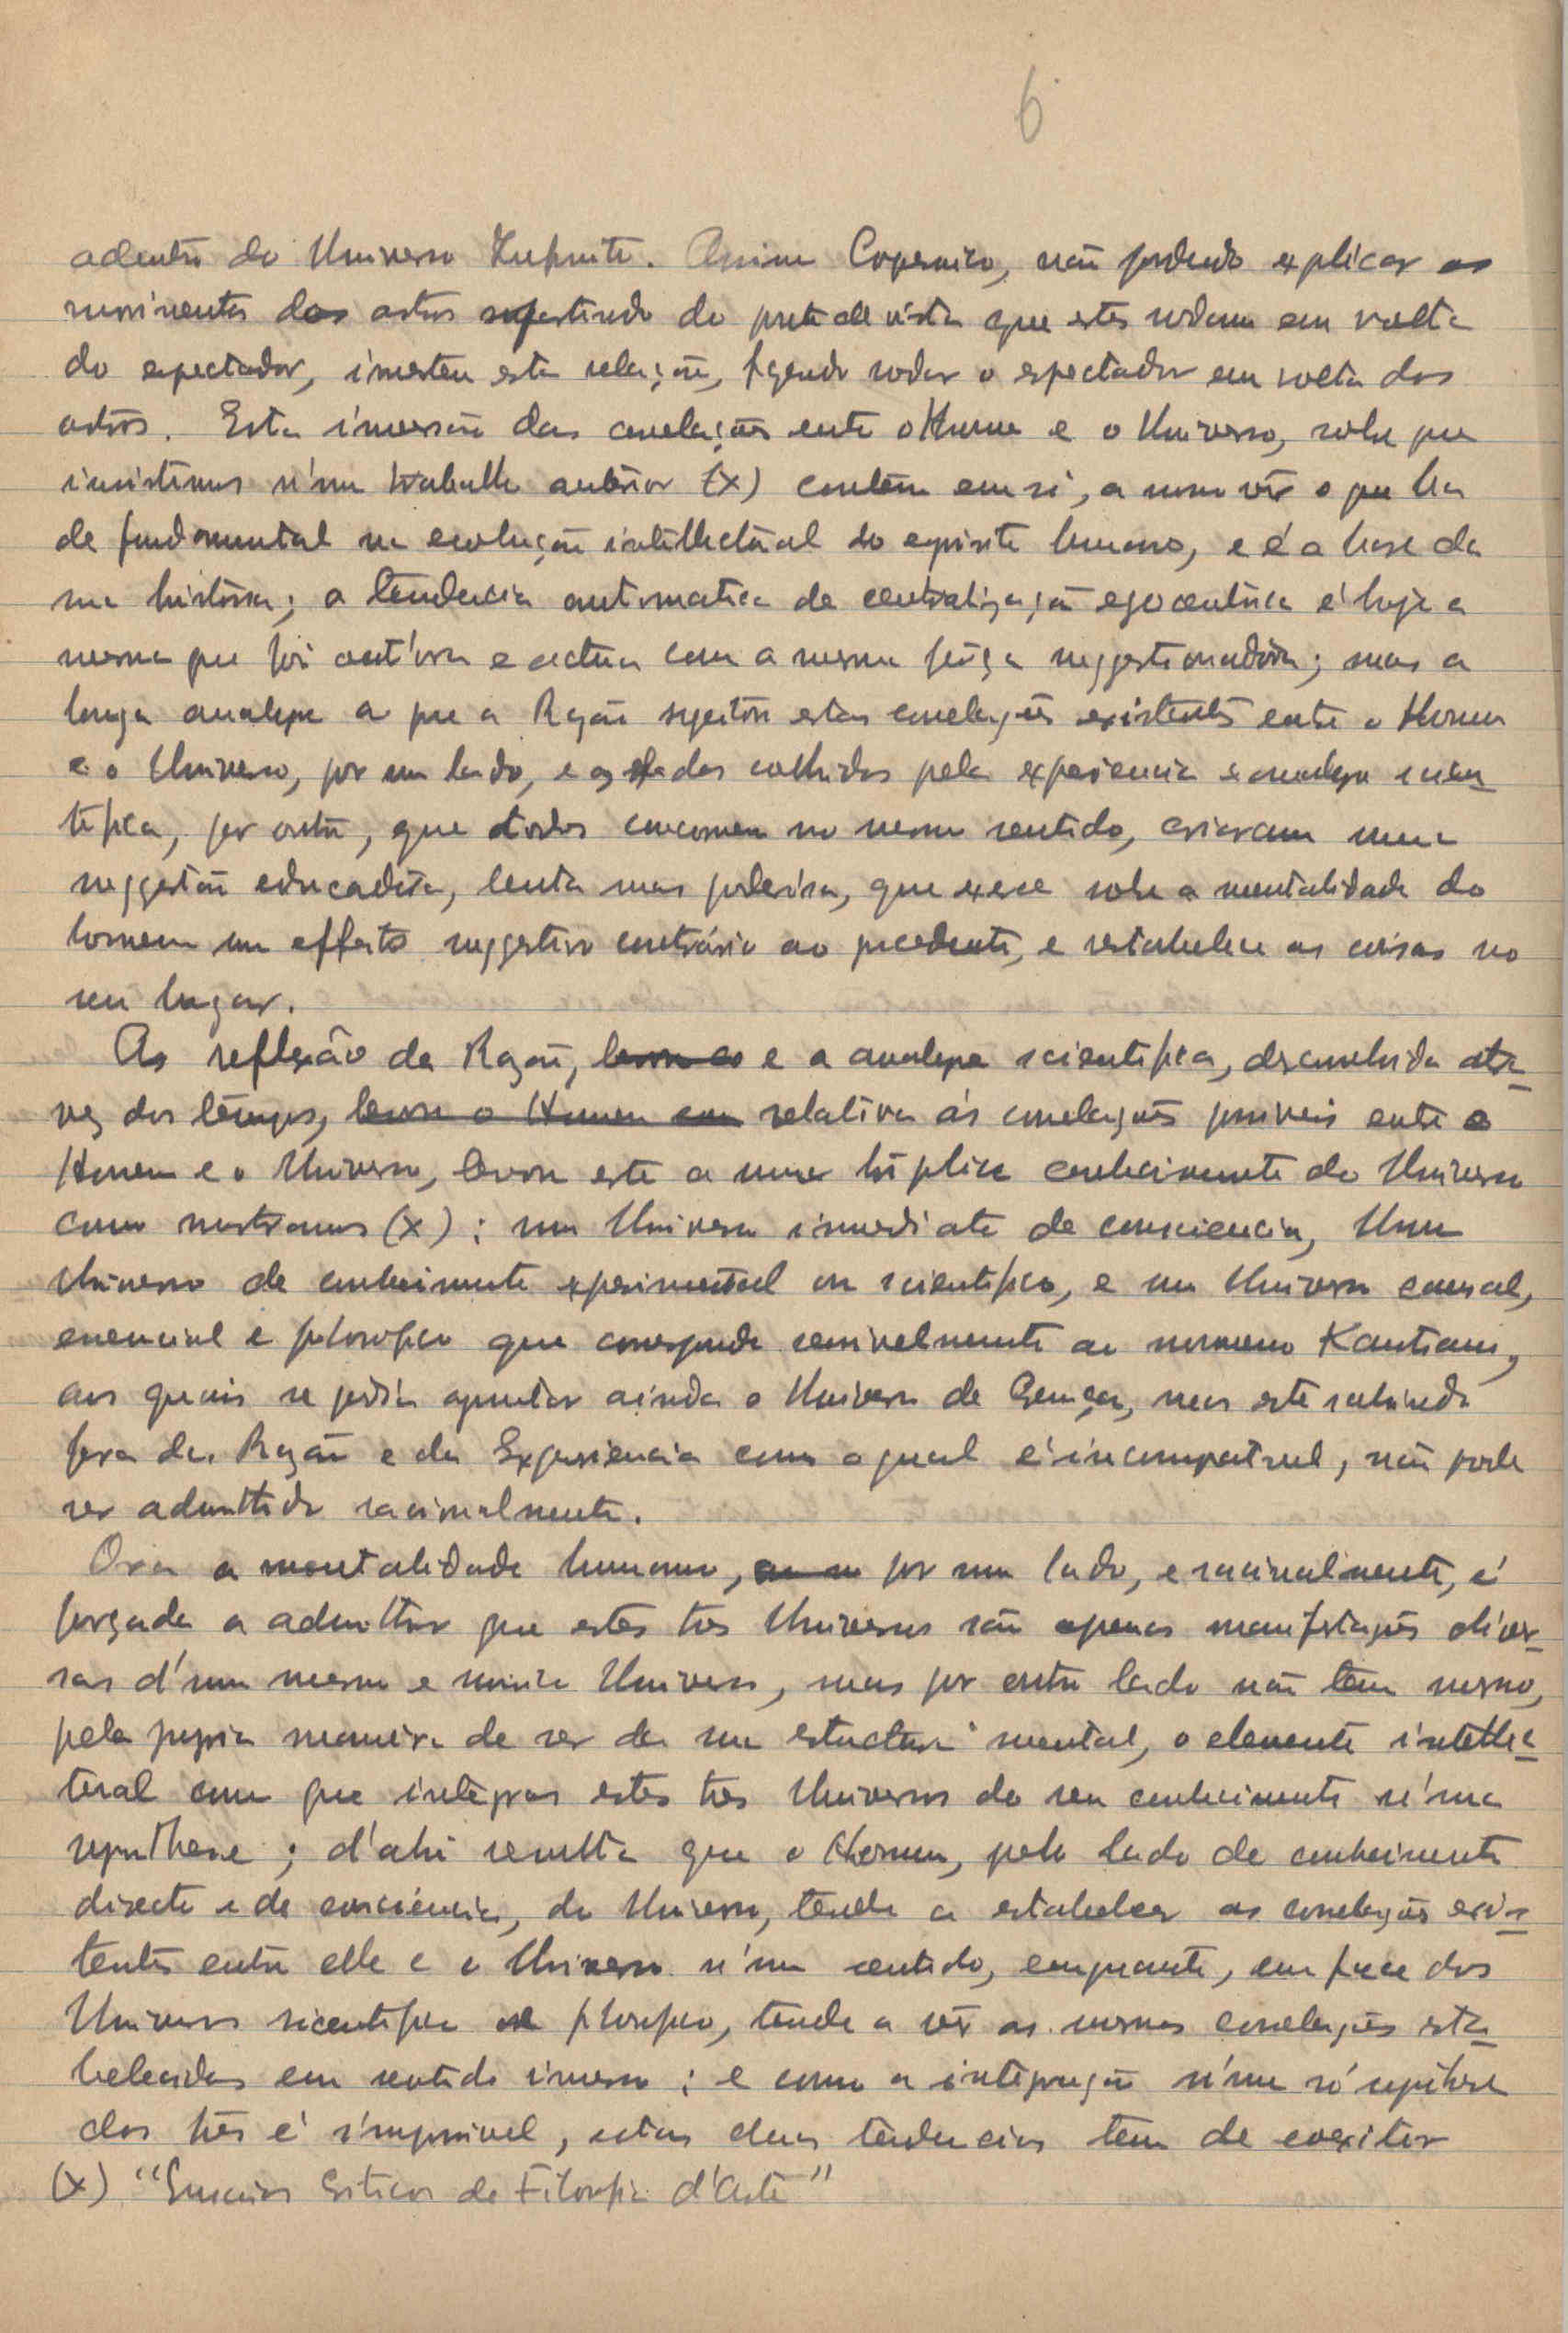 6
adentro do Universo Infinito. Assim Copernico, não podendo explicar os
movimentos dos astros partindo do ponto de vista que estes rodam em volta
do espectador, inverteu esta relação, fazendo rodar o espectador em volta dos
astros. Esta inversão das correlações entre o Homem e o Universo, sobre que
insistimos n'um trabalho anterior (x) contêm em si, a nosso vêr o que ha
de fundamental na evolução intellectual do espirito humano, e é a base da
sua história; a tendencia automatica de centralização egocentrica é hoje a
mesma que foi out'ora e actua com a mesma fôrça suggestionadora; mas a
longa analyse a que a Razão sujeitou estas correlações existentes entre o Homem
e o Universo, por um lado, e os dados colhidos pela experiencia e analyse scien-
tifica, por outro, que todos concorrem no mesmo sentido, criaram uma
suggestão educadora, lenta mas poderosa, que exerce sobre a mentalidade do
homem um effeito suggestivo contrário ao precedente, e restabelece as coisas no
seu lugar.
As reflexão da Razão, levou as e a analyse scientifica, desenvolvida atra-
vez dos têmpos, levou o Homem com relativa ás correlações possiveis entre o
Homem e o Universo, levou este a uma triplice conhecimento do Universo
como mostramos (x): um Universo immediato de consciencia, Um
Universo de conhecimento experimental ou scientifico, e um Universo causal,
essencial e filosofico que corresponde sensivelmente ao noumeno Kantiano,
aos quais se podia apontar ainda o Universo de Crença, mas este sahindo
fora da Razão e da Experiencia com o qual é incompativel, não pode
ser admittido racionalmente.
Ora a mentalidade humana, por um lado, e racionalmente, é
forçada a admittir que estes tres Universos são apenas manifestações diver-
sas d'um mesmo e unico Universo, mas por outro lado não tem mesmo,
pela propria maneira de ser da sua estructura mental, o elemento intellec-
tual com que integrar estes tres Universos do seu conhecimento n'uma
synthese; d'ahi resulta que o Homem, pelo lado do conhecimento
directo e de consciência, do Universo, tende a estabelecer as correlações exis-
tentes entre elle e o Universo n'um sentido, emquanto, em face dos
Universos scientifico e filosofico, tende a vêr as mesmas correlações esta-
belecidas em sentido inverso; e como a integração n'uma só synthese
dos três é impossivel, estas duas tendencias tem de coexistir
(x) "Ensaios Criticos de Filosofia d'Arte"